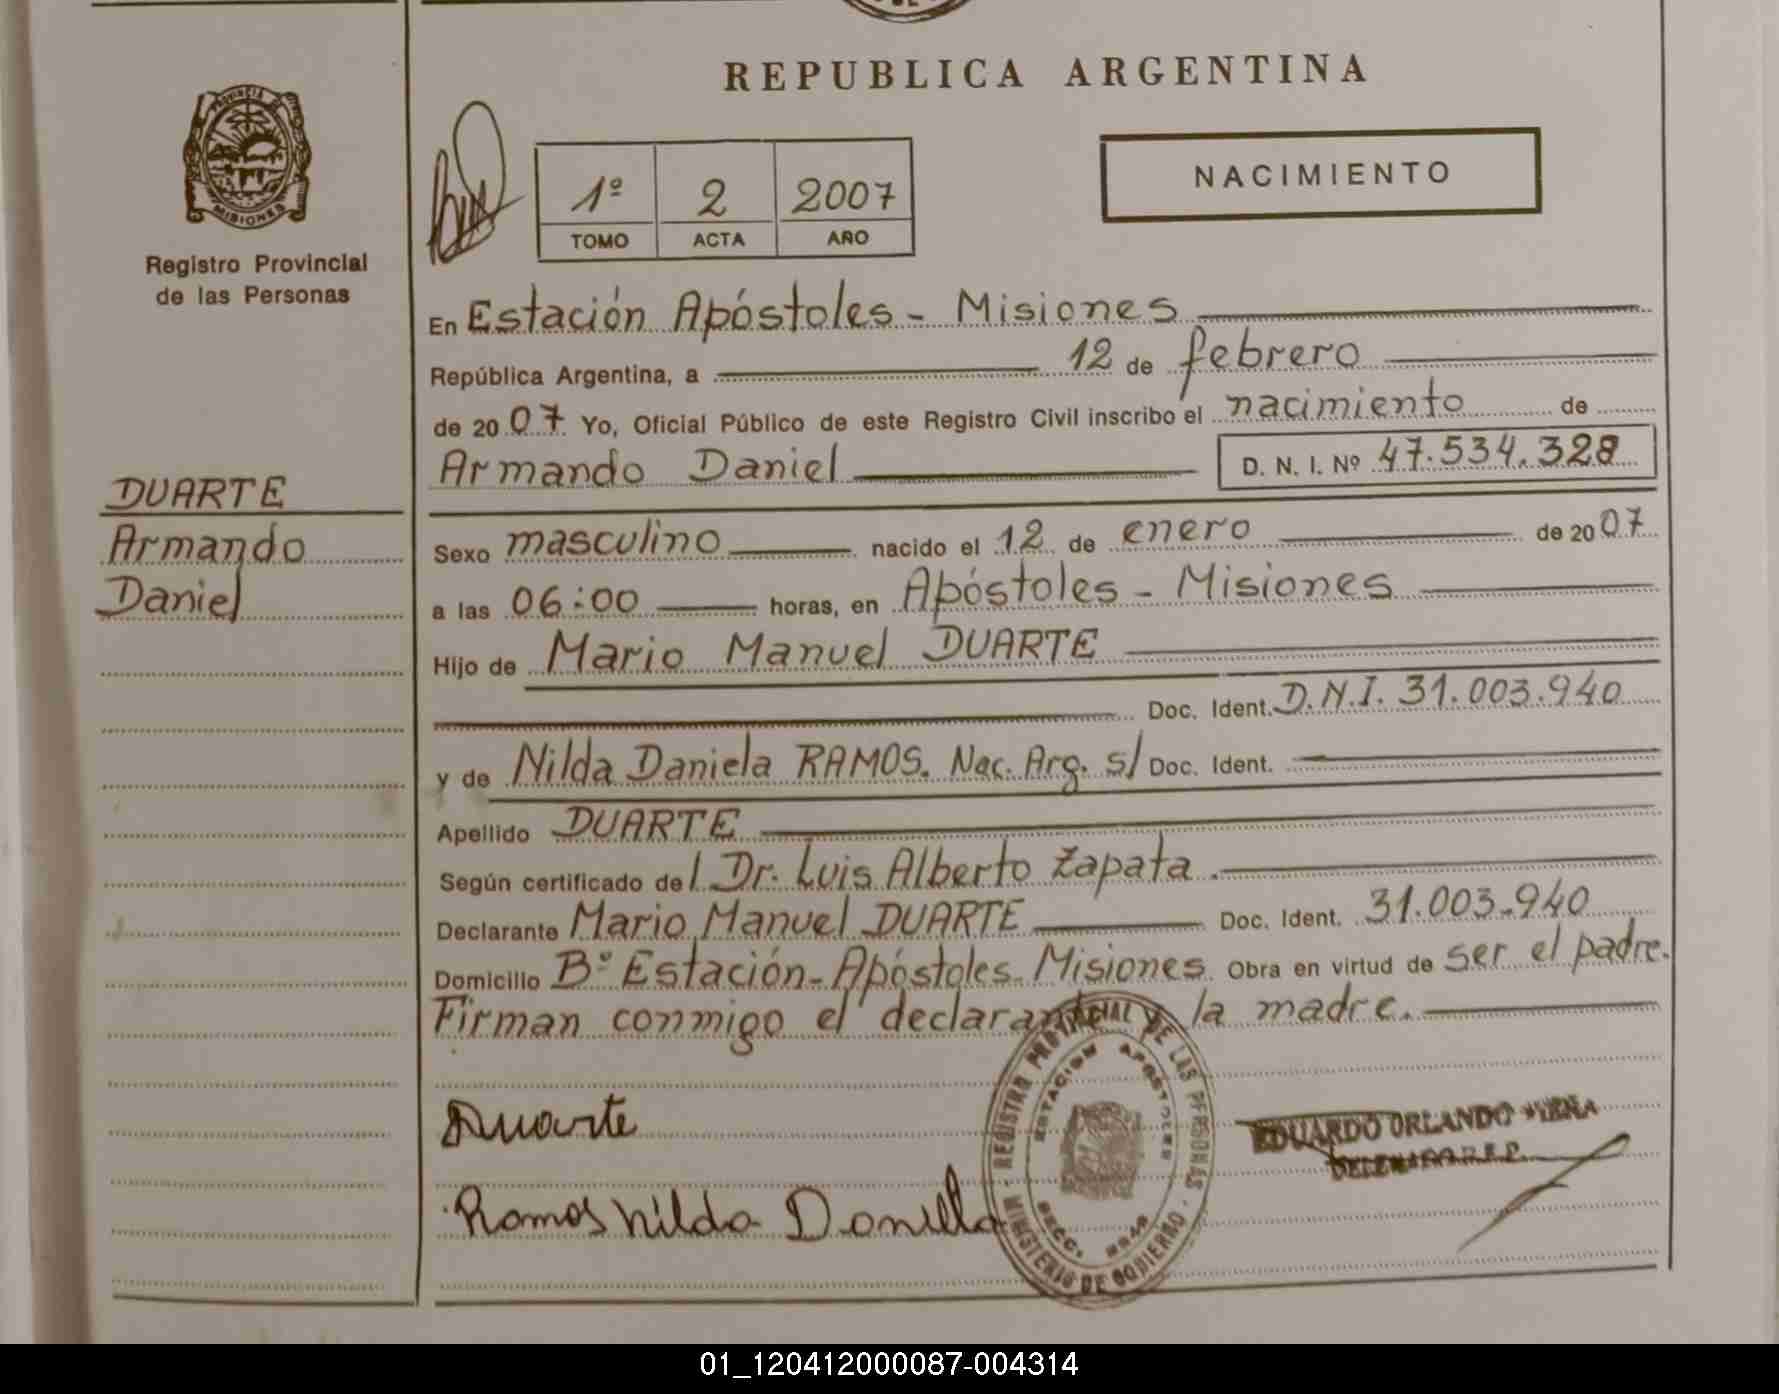 REPUBLICA ARGENTINA
PROVINCIA DE MISIONES
Registro Provincial
de las Personas
1º 2 2007
TOMO ACTA AÑO
NACIMIENTO
En Estación Apóstoles - Misiones
República Argentina, a 12 de febrero
de 2007 Yo, Oficial Público de este Registro Civil inscribo el nacimiento de
Armando Daniel D. N. I. Nº 47.534.328
DUARTE
Armando
Daniel
Sexo masculino nacido el 12 de enero de 2007
a las 06:00 horas, en Apóstoles - Misiones
Hijo de Mario Manuel DUARTE
Doc. Ident. D.N.I. 31.003.940
y de Nilda Daniela RAMOS. Nac. Arg. s/ Doc. Ident.
Apellido DUARTE
Según certificado del Dr. Luis Alberto Zapata.
Declarante Mario Manuel DUARTE Doc. Ident. 31.003.940
Domicilio Bº Estación - Apóstoles - Misiones Obra en virtud de ser el padre.
Firman conmigo el declarante y la madre.
Duarte
Ramos Nilda Daniela
REGISTRO PROVINCIAL DE LAS PERSONAS
MINISTERIO DE GOBIERNO
ESTACION APOSTOLES
SECC.
EDUARDO ORLANDO
01_120412000087-004314